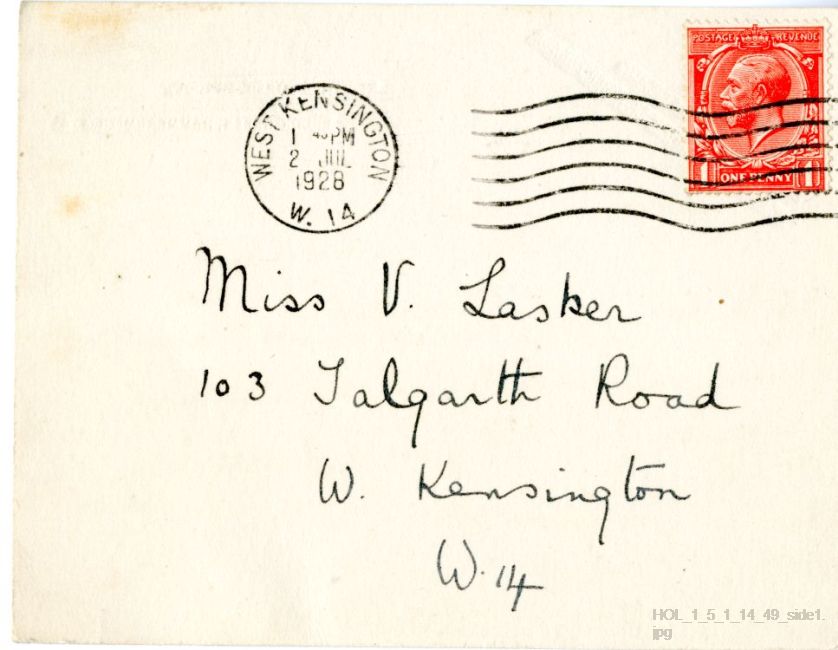 POSTAGE REVENUE
ONE PENNY
1 1
WEST KENSINGTON
1 45 PM
2 JUL
1928
W. 14
Miss V. Lasker
103 Talgarth Road
W. Kensington
W.14
HOL_1_5_1_14_49_side1.
jpg